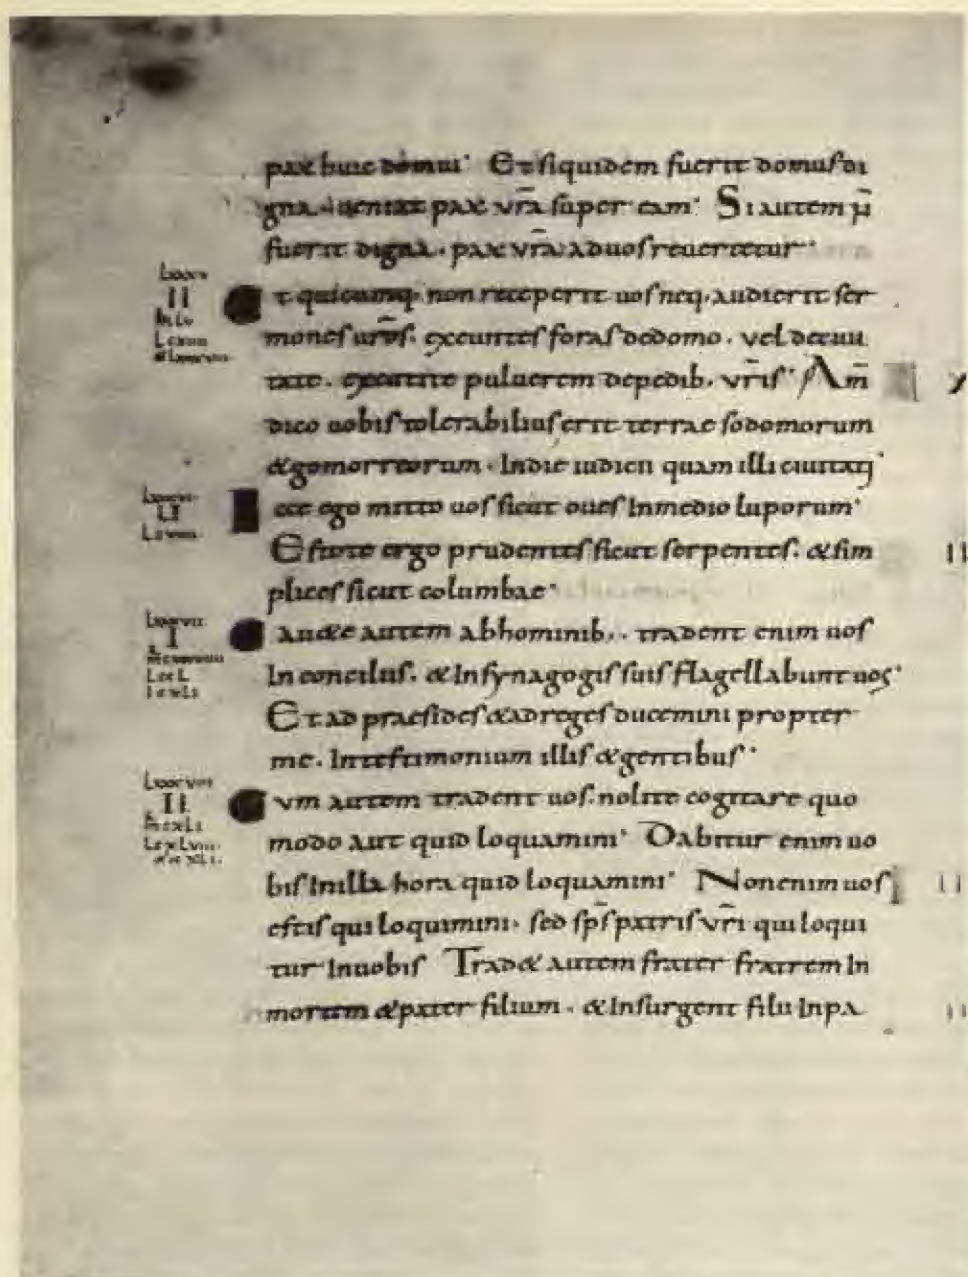 pax huic domui· Et siquidem fuerit domus di
gna· ueniat pax vr̄a super eam· Si autem n̄
fuerit digna· pax vr̄a aduos reuertetur·
II
Et quicumq· non receperit uos neq· audierit ser
mones uros· exeuntes foras dedomo· vel deciui
tate· excutite puluerem depedib· vr̄is· Am̄
dico uobis tolerabilius erit terrae sodomorum
&gomorreorum· Indie iudicii quam illi ciuitati
II
Ecce ego mitto uos sicut oues Inmedio luporum·
Estote ergo prudentes sicut serpentes· &sim
plices sicut columbae·
I
Cau&e autem abhominib·· tradent enim uos
In conciliis· &Insynagogis suis flagellabunt uos·
Et ad praesides &adreges ducemini propter
me· Intestimonium illis &gentibus·
II
Cvm autem tradent uos· nolite cogitare quo
modo aut quid loquamini· Dabitur enim uo
bis Inilla hora quid loquamini· Nonenim uos
estis qui loquimini· sed sp̄s patris vr̄i qui loqui
tur Inuobis Trad& autem frater fratrem In
mortem &pater filium· &Insurgent filii Inpa